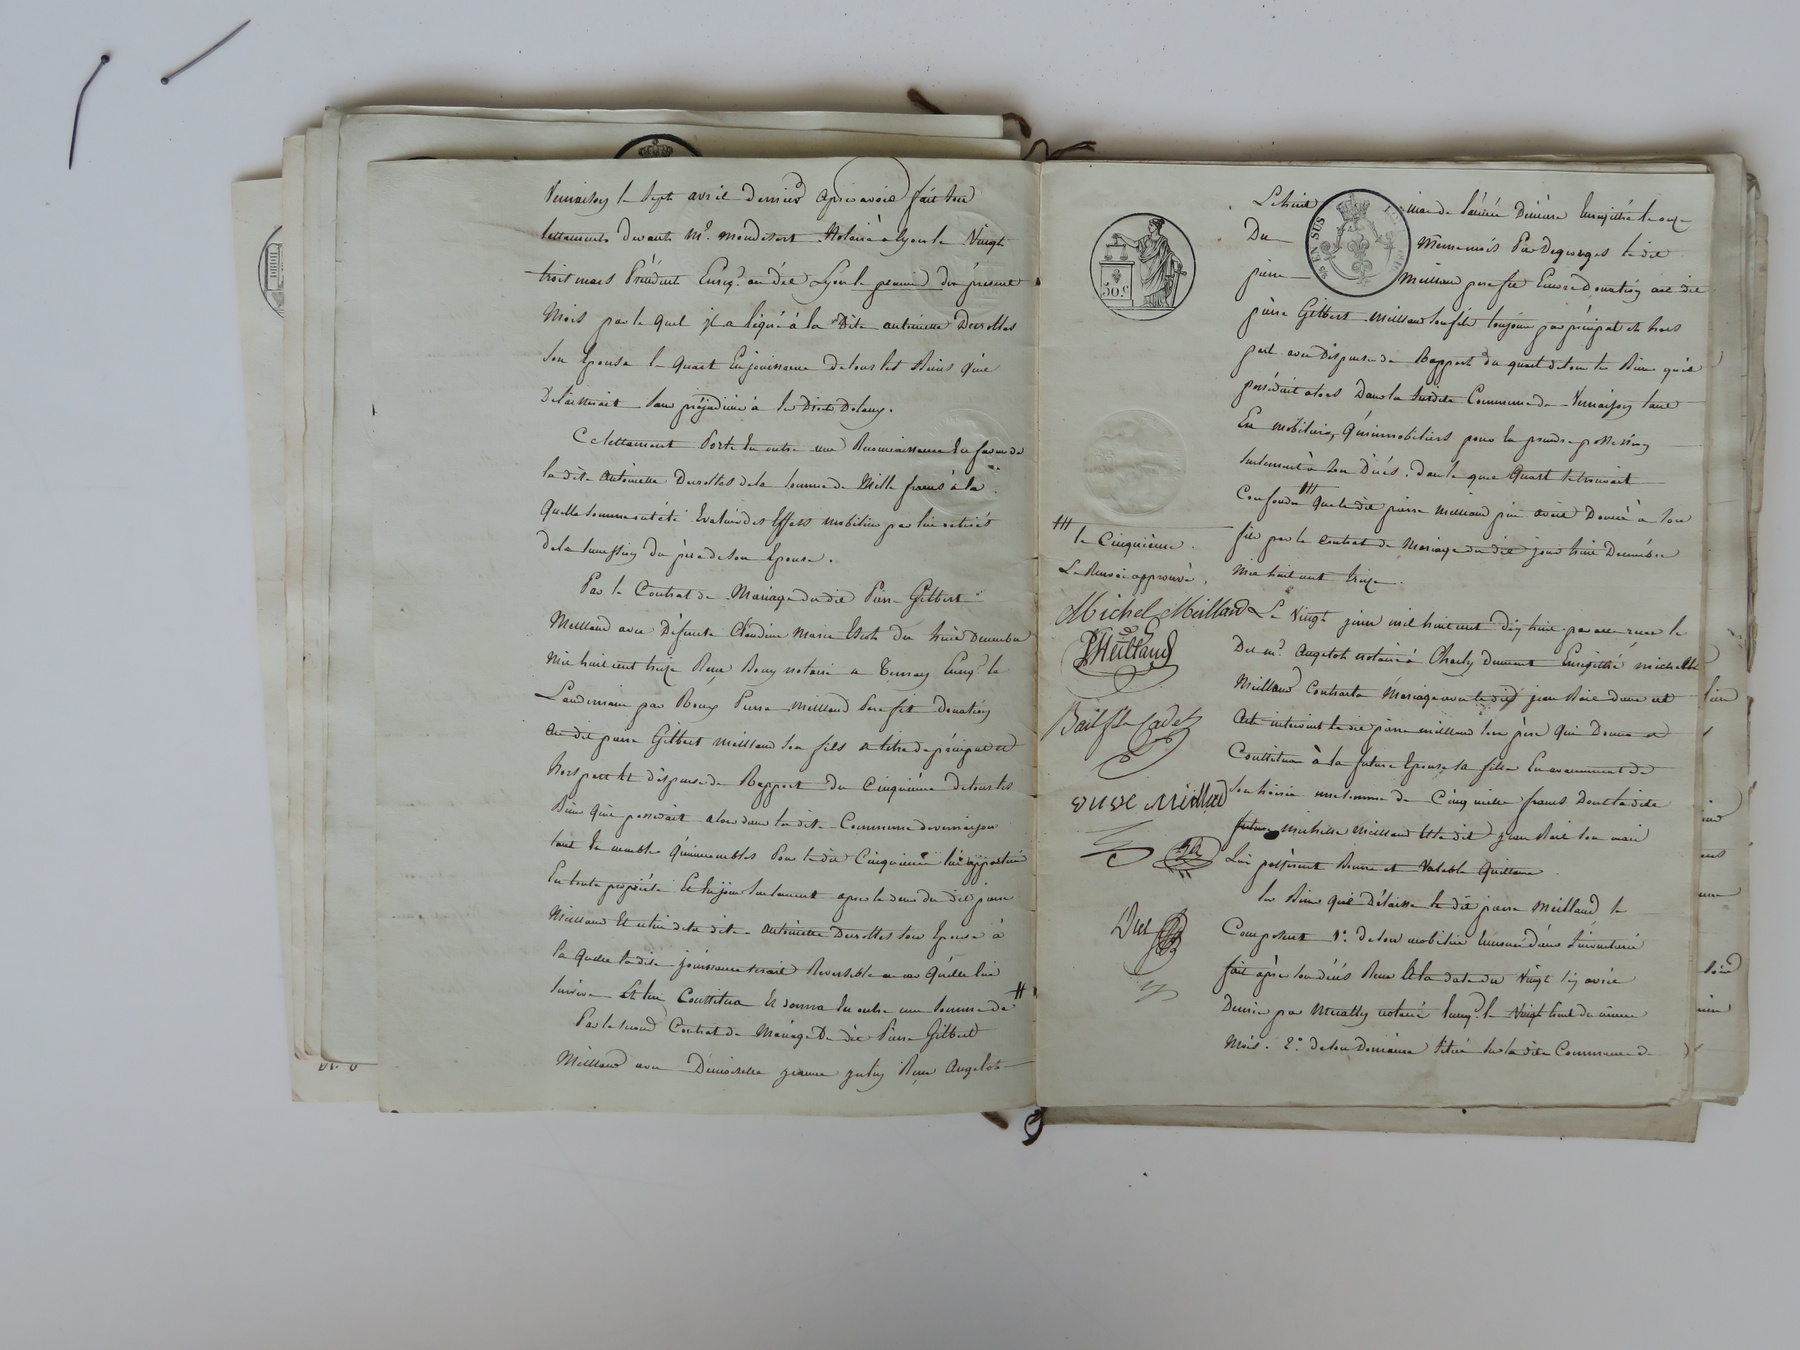 Vernaison le Sept avril dernier après avoir fait son
testament devant Mᵉ. Mondesert Notaire à Lyon le Vingt
trois mars Précédent Enregᵉ. au dit Lyon le premier du présent
Mois par le quel il a légué à la Dite antoinette Desrolles
Son Epouse le quart En jouissance de tous les Biens qu'il
Délaisserait Sans préjudice à
Ce testament Porte En outre une Reconnaissance En faveur de
la dite Antoinette Desrolles de la Somme de Mille francs à la
quelle Somme ont été Evalués des Effets mobiliers par lui retirés
de la Succession du père de Son Epouse.
Par le Contrat de Mariage du dit Pierre Gilbert
Meilland avec Défunte Claudine Marie du huit Décembre
Mil huit cent treize Reçu Bouy notaire a Ternay Enregᵉ le
Lendemain par Bouy Pierre Meilland Père fit Donation
au dit pierre Gilbert Meilland Son fils a titre de préciput et
hors part et dispense de Rapport du Cinquième de tous les
Biens qu'il possédait alors dans la dite Commune de vernaison
tant En meubles qu'immeubles Pour le dit Cinquième lui appartenir
En toute propriété Et En jouir Seulement après le décès du dit pierre
Meilland Et celui de la dite Antoinette Desrolles Son Epouse à
la quelle la dite jouissance Serait Reversible au cas qu'elle lui
Survive Et lui Constitua Et donna En outre une Somme de #
Par le Second Contrat de Mariage Du dit Pierre Gilbert
Meilland avec Demoiselle jeanne Reçu Angelot
50.C
25 EN SUS
Le huit mai de l'année Dernière Enregistré le onze
Du Même mois Par Degeorges le dit
pierre Meilland père fit Encore Donation au dit
pierre Gilbert Meilland Son fils toujours par préciput et hors
part avec Dispense de Rapport du quart de tous les Biens qu'il
possédait alors Dans la Susdite Commune de Vernaison tant
En mobiliers, qu'immobiliers pour En prendre possession
Seulement à Son Décès. dans le quel quart Se trouvait
Confondu ### Que le dit pierre Meilland père avait Donné à Son
fils par le Contrat de Mariage du dit jour huit Décembre
Mil huit cent treize.
### le Cinquième.
Le Renvoi approuvé.
Michel Meilland
PMeilland
Bail fils Cadet
veuve Meilland
Le Vingt janvier mil huit cent dix huit par acte reçu le
Dit mᵉ. Angelot notaire à Charly Dument Enregistré michelle
Meilland Contracta Mariage avec le dit jean Bail dans cet
acte intervint le dit pierre meilland Son père qui Donna et
Constitua à la future Epouse Sa fille En avancement de
Son hoirie une Somme de Cinq mille francs Dont la dite
future michelle meilland Et le dit jean Bail Son mari
Lui passèrent Bonne et Valable Quittance.
les Biens que Délaisse le dit pierre Meilland Se
Composent 1º. de Son mobilier Enoncé dans l'inventaire
fait après Son décès Reçu Et la date du Vingt Six avril
Dernier par notaire Enregᵉ. le Vingt huit du même
Mois. 2º. de Son Domaine Situé Sur la dite Commune de